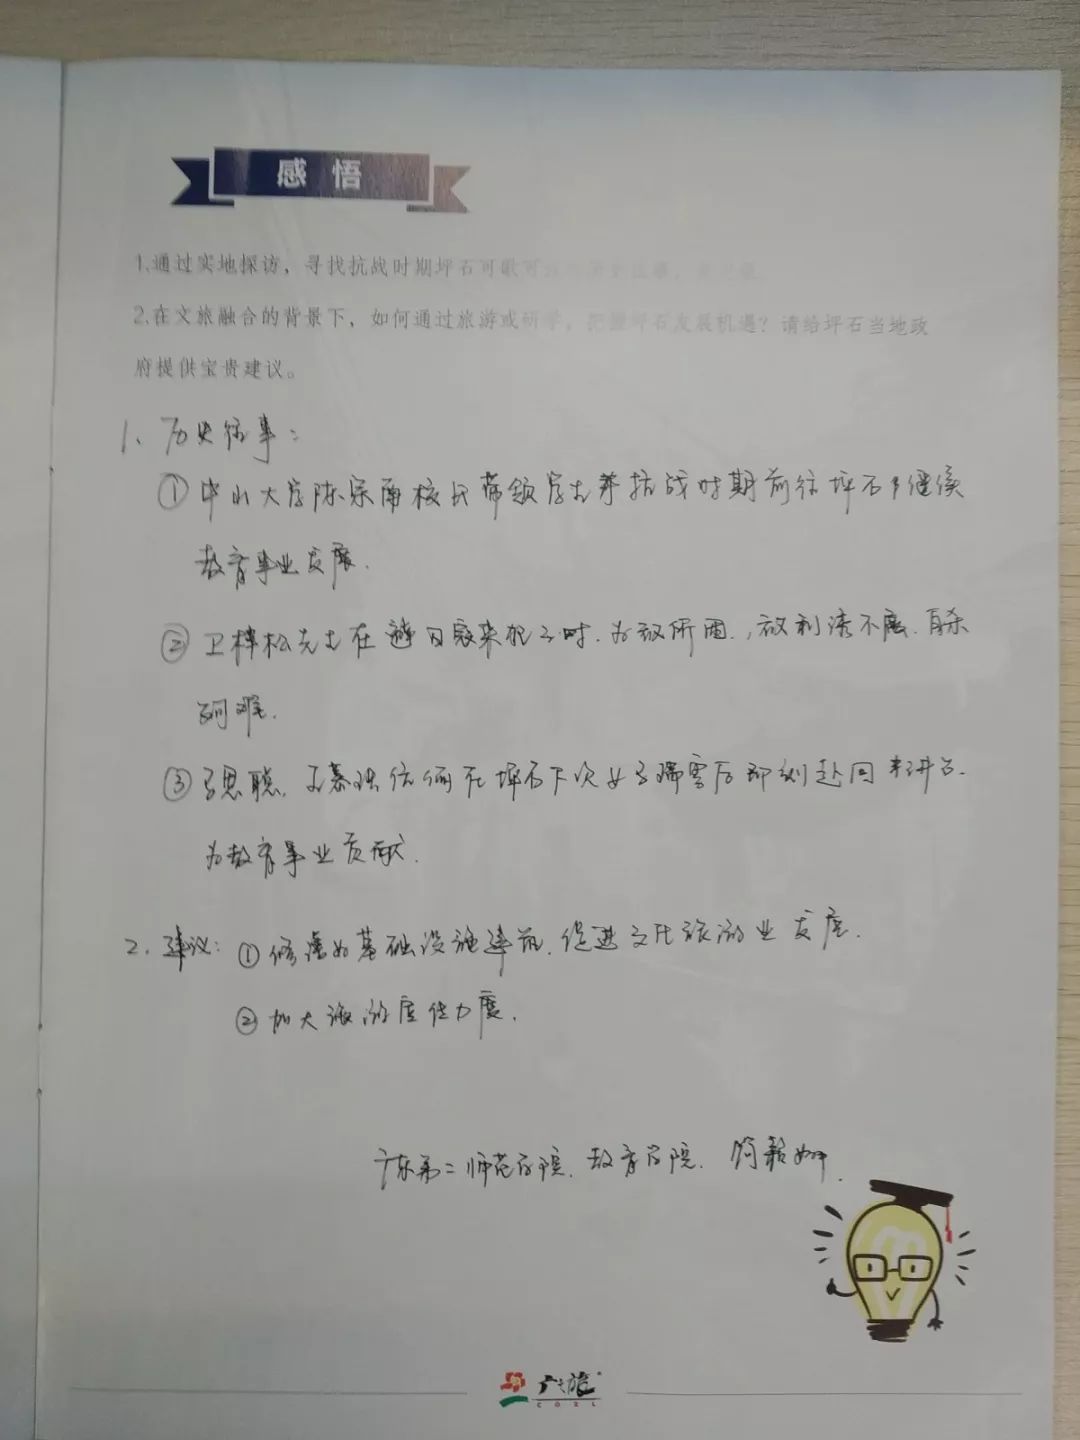 感 悟
1.通过实地探访，寻找抗战时期坪石可歌可
2.在文旅融合的背景下，如何通过旅游或研学，把握坪石发展机遇？请给坪石当地政
府提供宝贵建议。
1、历史往事：
①中山大学陈宗南校长带领学生等抗战时期前往坪石继续
教育事业发展.
②卫梓松先生在避日寇来犯时.为敌所困.,敌利诱不屈.自杀
殉难.
③马思聪、王慕理伉俪在坪石下次女马瑞雪后即刻赴回来讲台.
为教育事业贡献.
2.建议：①修建如基础设施建筑.促进文化旅游业发展.
②加大旅游宣传力度.
广东第二师范学院.教育学院.
广之旅